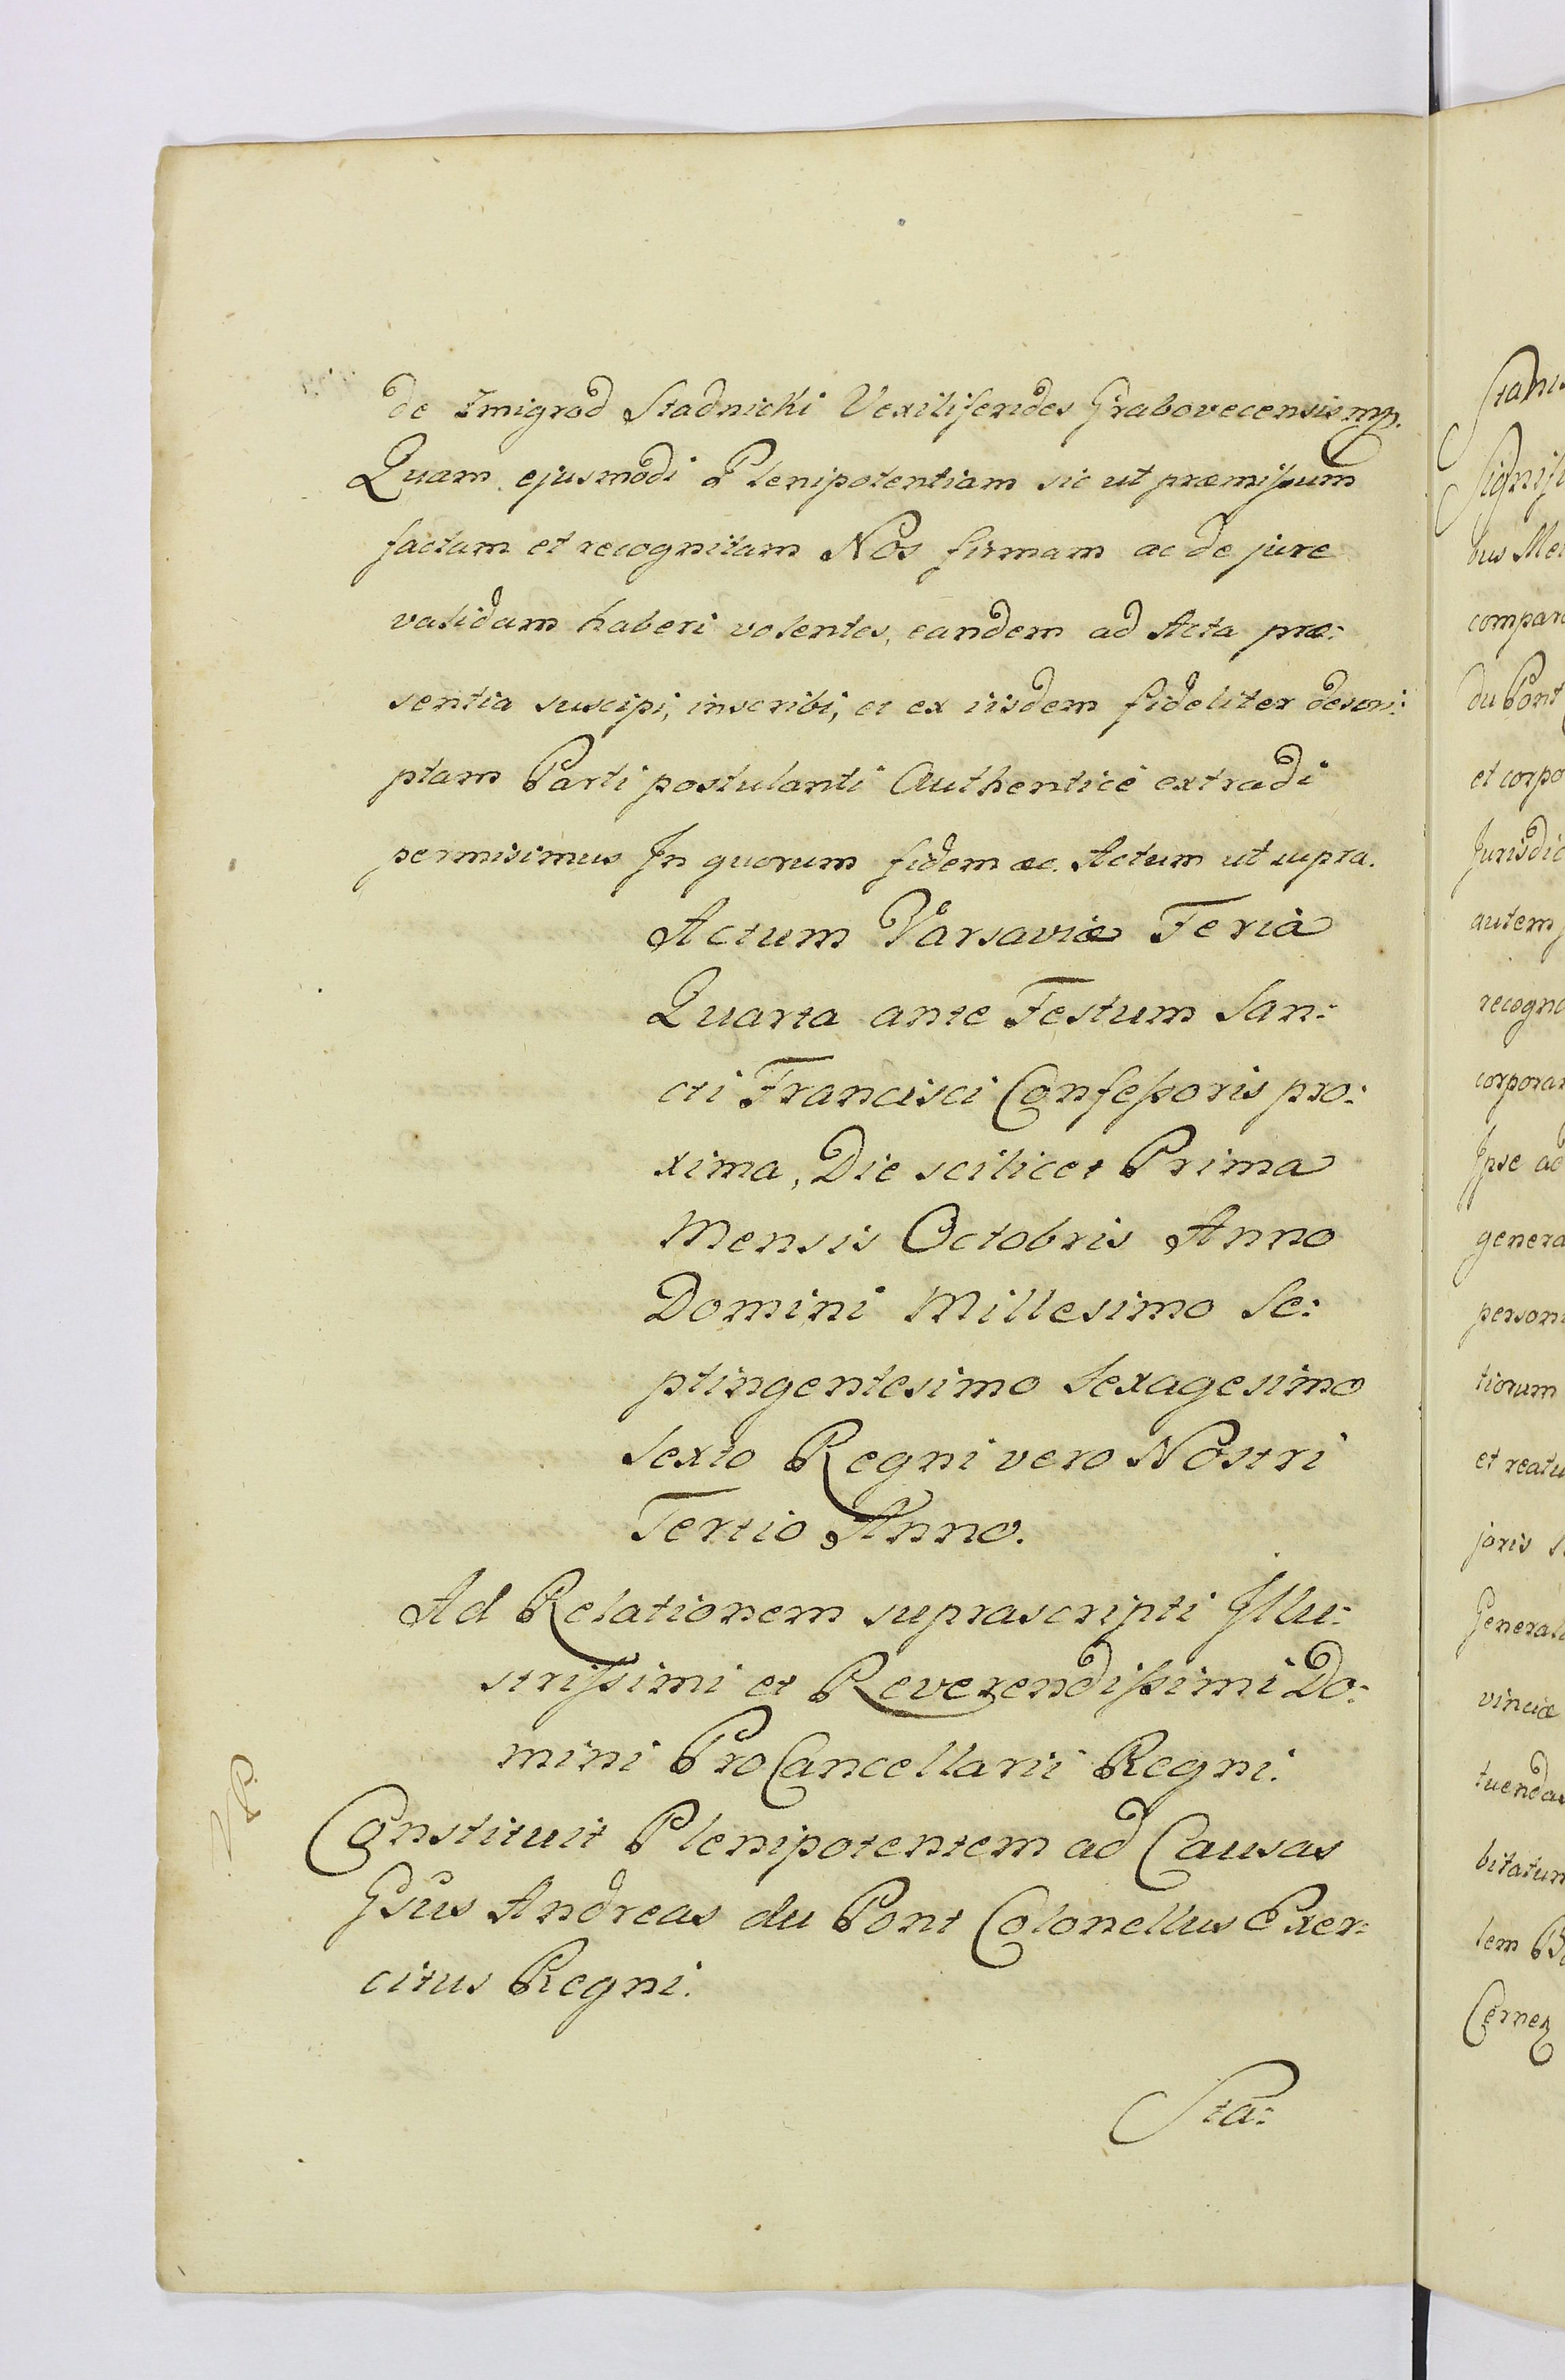 de Zmigrod Stadnicki Vexiliferides Grabovecensis mp.
Quam ejusmodi Plenipotentiam sic ut præmissum
factam et recognitam Nos firmam ac de jure
validam haberi volentes, eandem ad Acta præ:
sentia suscipi, inscribi, et ex iisdem fideliter descri:
ptam Parti postulanti Authenticè extradi
permisimus In quorum fidem &c. Actum ut supra.
Actum Varsaviæ Feriâ
Quarta ante Festum San:
cti Francisci Confessoris pro:
xima, Die scilicet Prima
Mensis Octobris Anno
Domini Millesimo Se:
ptingentesimo Sexagesimo
Sexto Regni vero Nostri
Tertio Anno.
Ad Relationem suprascripti Illu:
strissimi et Reverendissimi Do:
mini ProCancellarii Regni.
Constituit Plenipotentem ad Causas
Gsus Andreas du Pont Colonellus Exer:
citus Regni.
Sta:
Stani
Signifi
bus Me
compar
du Pont
et corpo
Jurisdic
autem
recogno
corpora
Ipse ad
genera
person
tiorum
et reatu
joris
General
vinciæ
tuenda
bitatum
lem